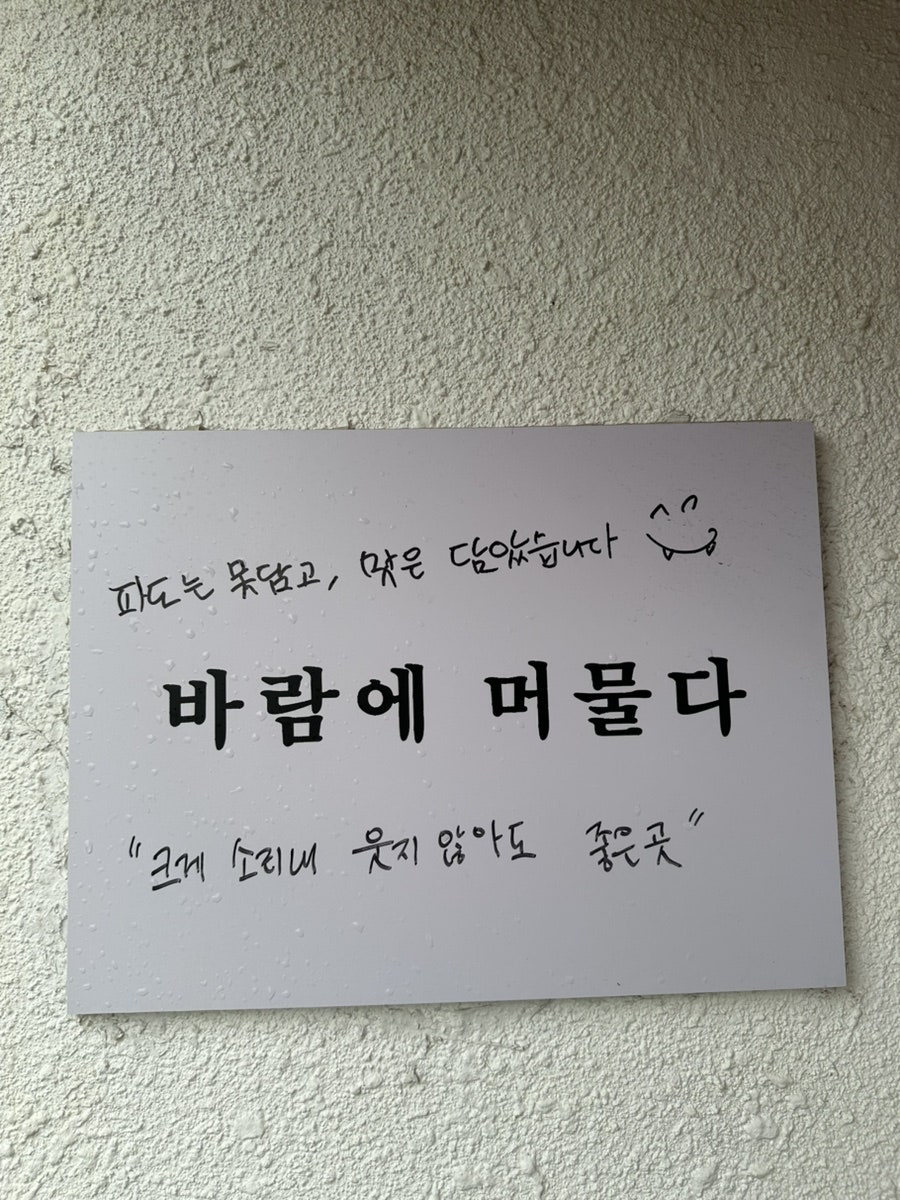 파도는 못담고, 맛은 담았습니다
바람에 머물다
"크게 소리내 웃지 않아도 좋은곳"